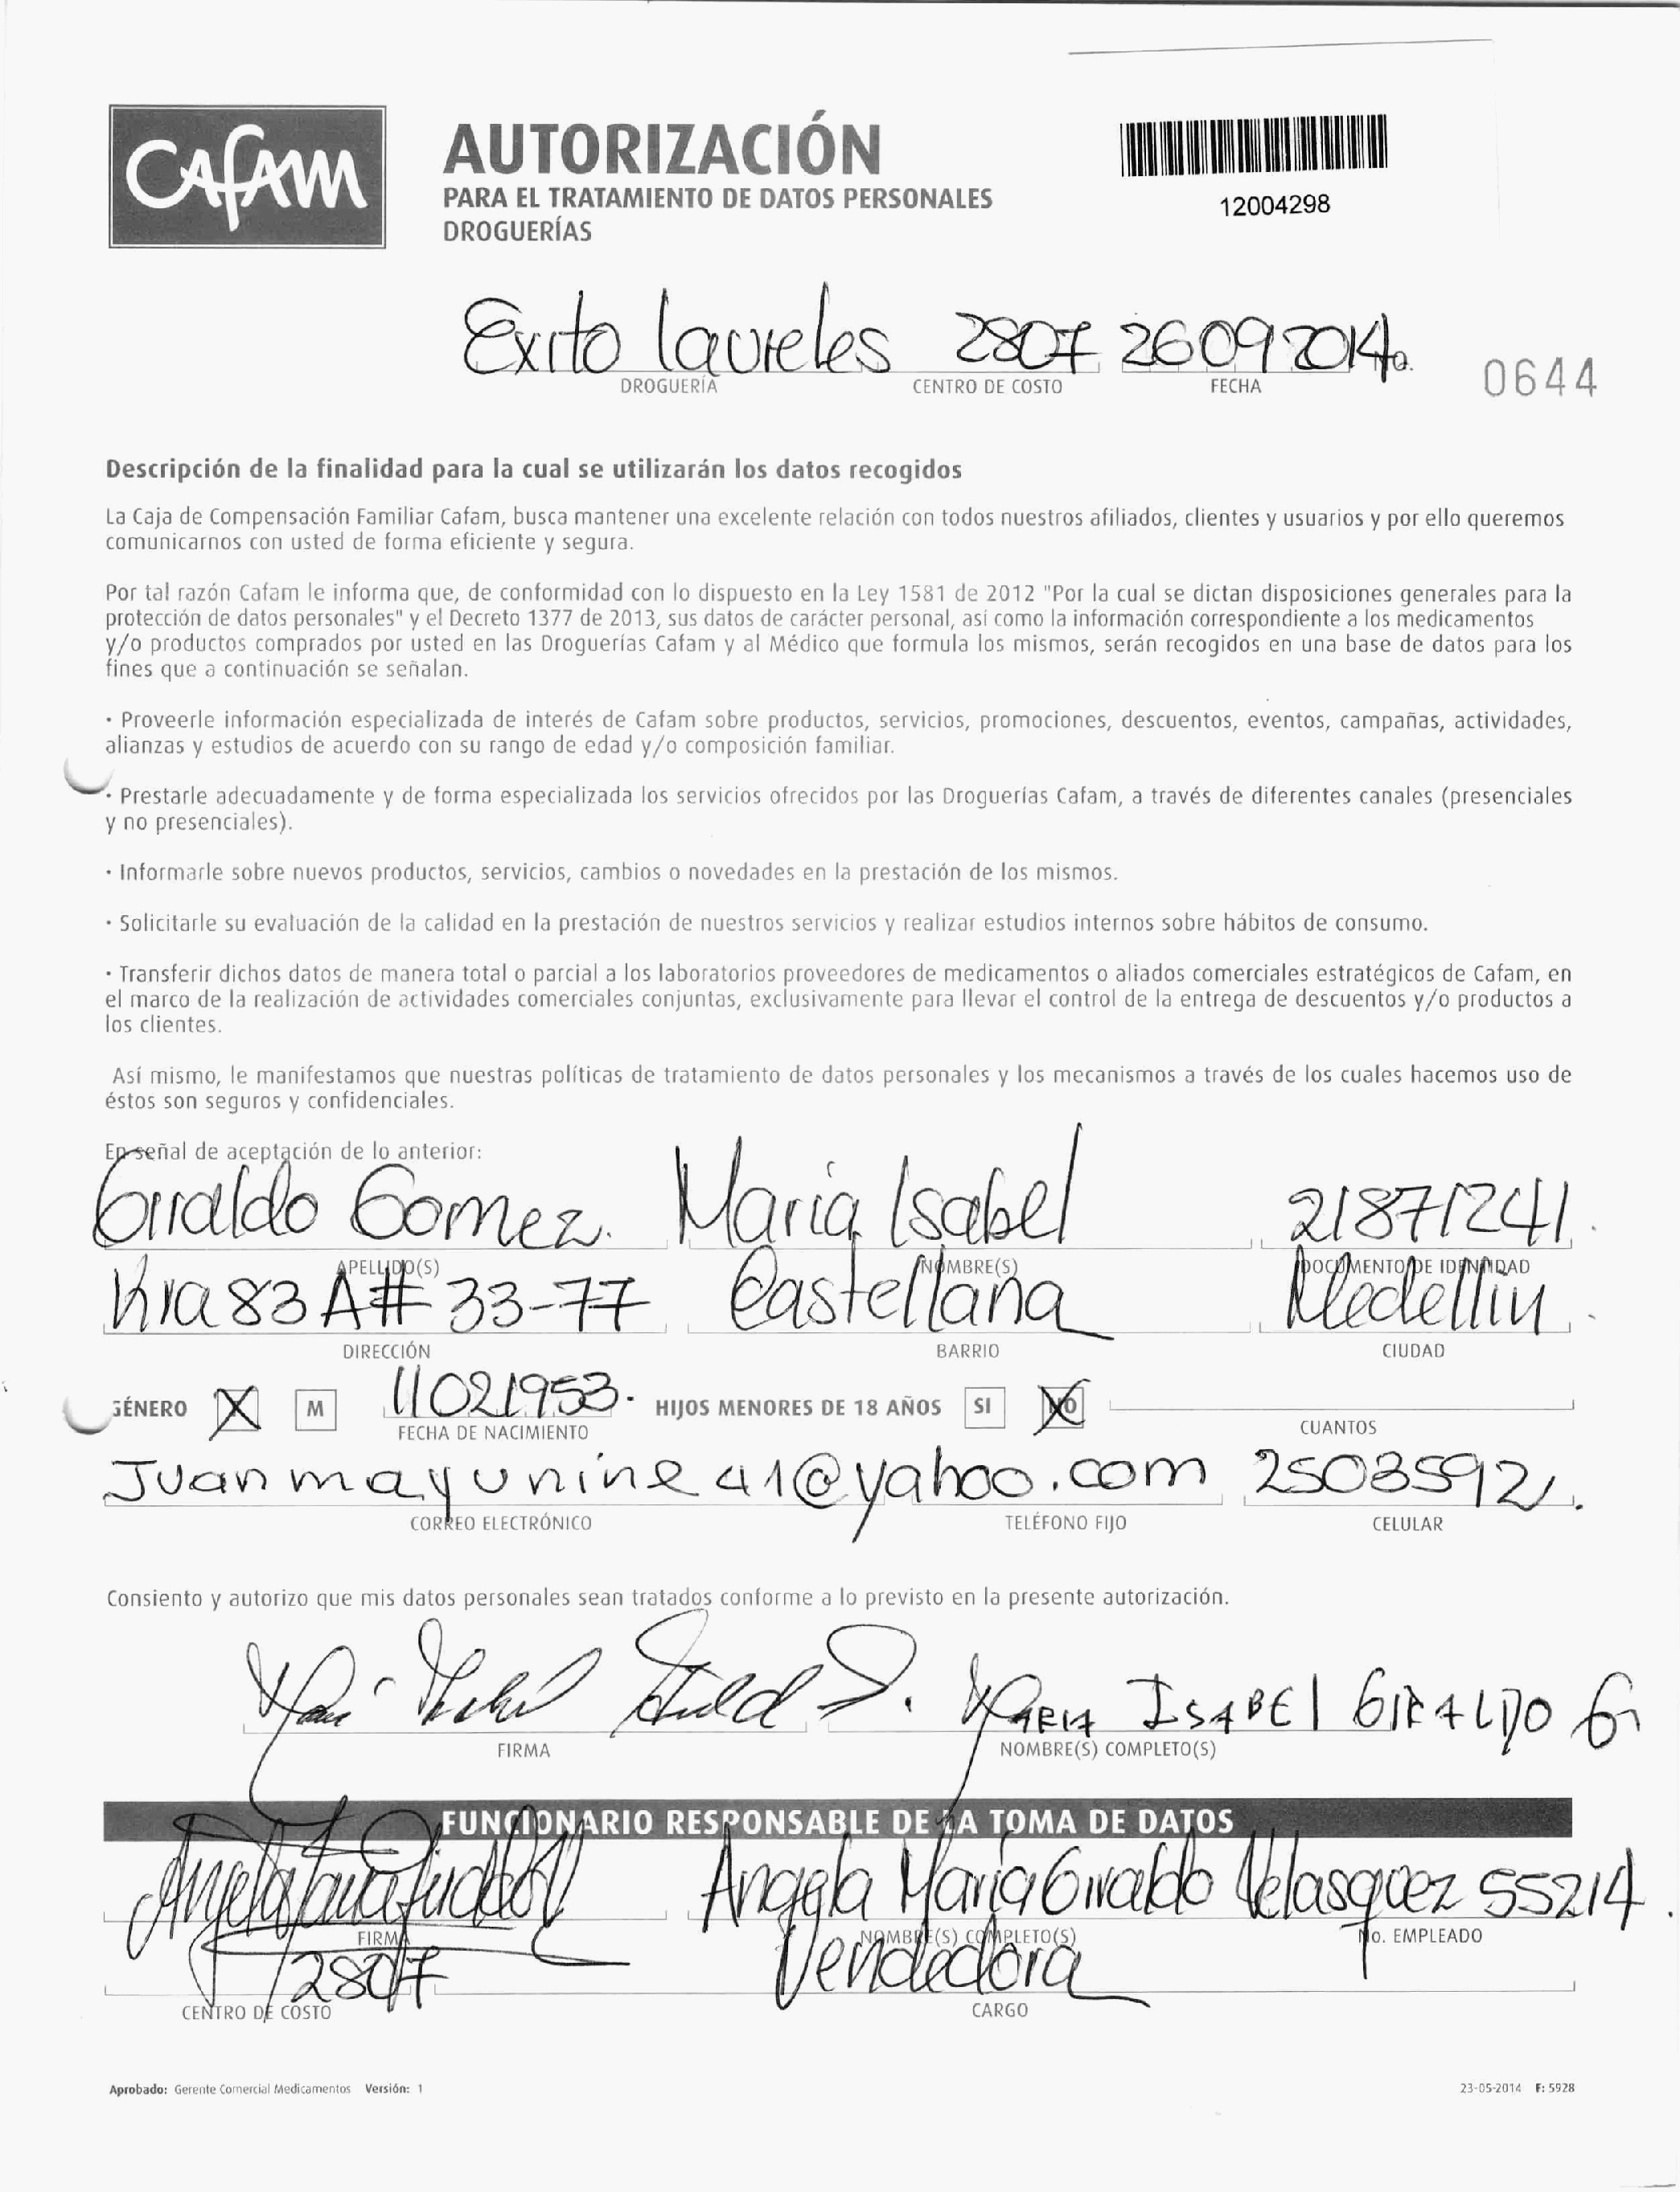 CAFAM
AUTORIZACIÓN
PARA EL TRATAMIENTO DE DATOS PERSONALES
DROGUERÍAS
12004298
Exito laureles 2807 26092014
DROGUERÍA CENTRO DE COSTO FECHA
0644
Descripción de la finalidad para la cual se utilizarán los datos recogidos
La Caja de Compensación Familiar Cafam, busca mantener una excelente relación con todos nuestros afiliados, clientes y usuarios y por ello queremos
comunicarnos con usted de forma eficiente y segura.
Por tal razón Cafam le informa que, de conformidad con lo dispuesto en la Ley 1581 de 2012 "Por la cual se dictan disposiciones generales para la
protección de datos personales" y el Decreto 1377 de 2013, sus datos de carácter personal, así como la información correspondiente a los medicamentos
y/o productos comprados por usted en las Droguerías Cafam y al Médico que formula los mismos, serán recogidos en una base de datos para los
fines que a continuación se señalan.
· Proveerle información especializada de interés de Cafam sobre productos, servicios, promociones, descuentos, eventos, campañas, actividades,
alianzas y estudios de acuerdo con su rango de edad y/o composición familiar.
· Prestarle adecuadamente y de forma especializada los servicios ofrecidos por las Droguerías Cafam, a través de diferentes canales (presenciales
y no presenciales).
· Informarle sobre nuevos productos, servicios, cambios o novedades en la prestación de los mismos.
· Solicitarle su evaluación de la calidad en la prestación de nuestros servicios y realizar estudios internos sobre hábitos de consumo.
· Transferir dichos datos de manera total o parcial a los laboratorios proveedores de medicamentos o aliados comerciales estratégicos de Cafam, en
el marco de la realización de actividades comerciales conjuntas, exclusivamente para llevar el control de la entrega de descuentos y/o productos a
los clientes.
Así mismo, le manifestamos que nuestras políticas de tratamiento de datos personales y los mecanismos a través de los cuales hacemos uso de
éstos son seguros y confidenciales.
En señal de aceptación de lo anterior:
Giraldo Gomez. Maria Isabel 21871241.
APELLIDO(S) NOMBRE(S) DOCUMENTO DE IDENTIDAD
Kra 83 A # 33-77 Castellana Medellin
DIRECCIÓN BARRIO CIUDAD
GÉNERO X M 11021953. HIJOS MENORES DE 18 AÑOS SI NO
FECHA DE NACIMIENTO CUANTOS
Juanmayunine41@yahoo.com 2503592
CORREO ELECTRÓNICO TELÉFONO FIJO CELULAR
Consiento y autorizo que mis datos personales sean tratados conforme a lo previsto en la presente autorización.
MARIA ISABEL GIRALDO G
FIRMA NOMBRE(S) COMPLETO(S)
FUNCIONARIO RESPONSABLE DE LA TOMA DE DATOS
Angela Maria Giraldo Velasquez 55214
FIRMA NOMBRE(S) COMPLETO(S) No. EMPLEADO
2807 Vendedora
CENTRO DE COSTO CARGO
Aprobado: Gerente Comercial Medicamentos Versión: 1 23-05-2014 F: 5928